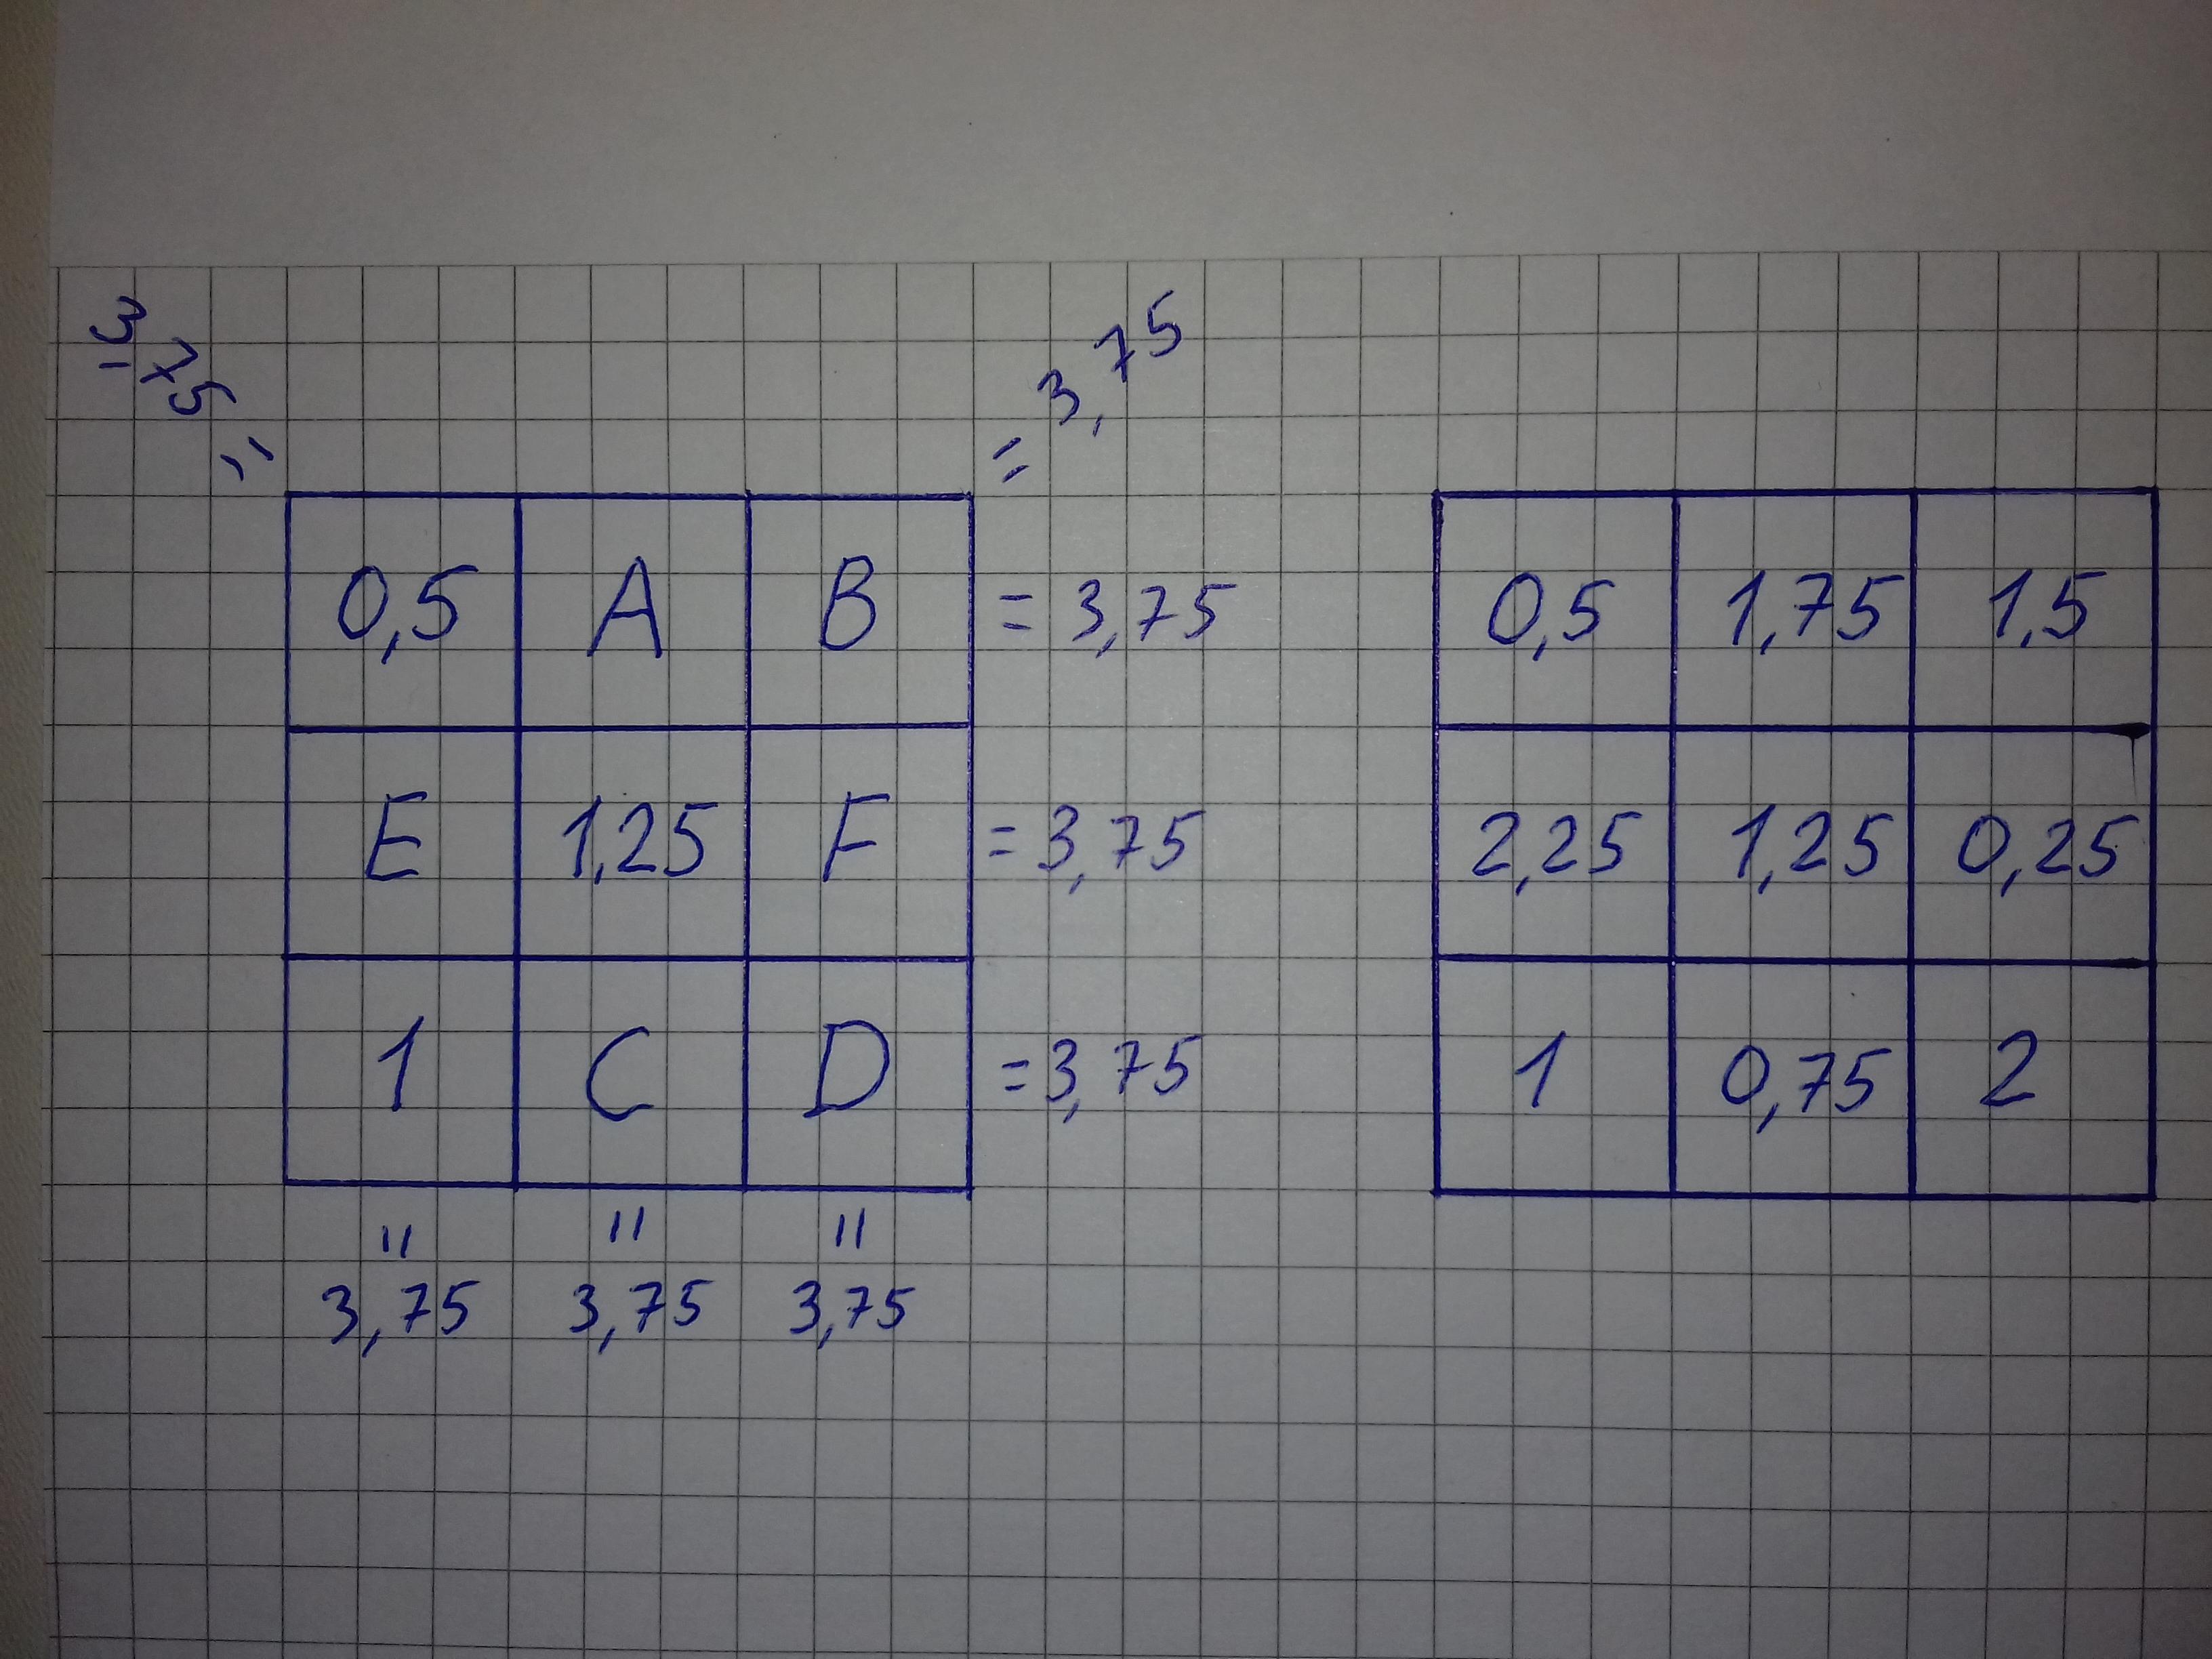 3,75
=
= 3,75
0,5 A B = 3,75
E 1,25 F = 3,75
1 C D = 3,75
= = =
3,75 3,75 3,75
0,5 1,75 1,5
2,25 1,25 0,25
1 0,75 2